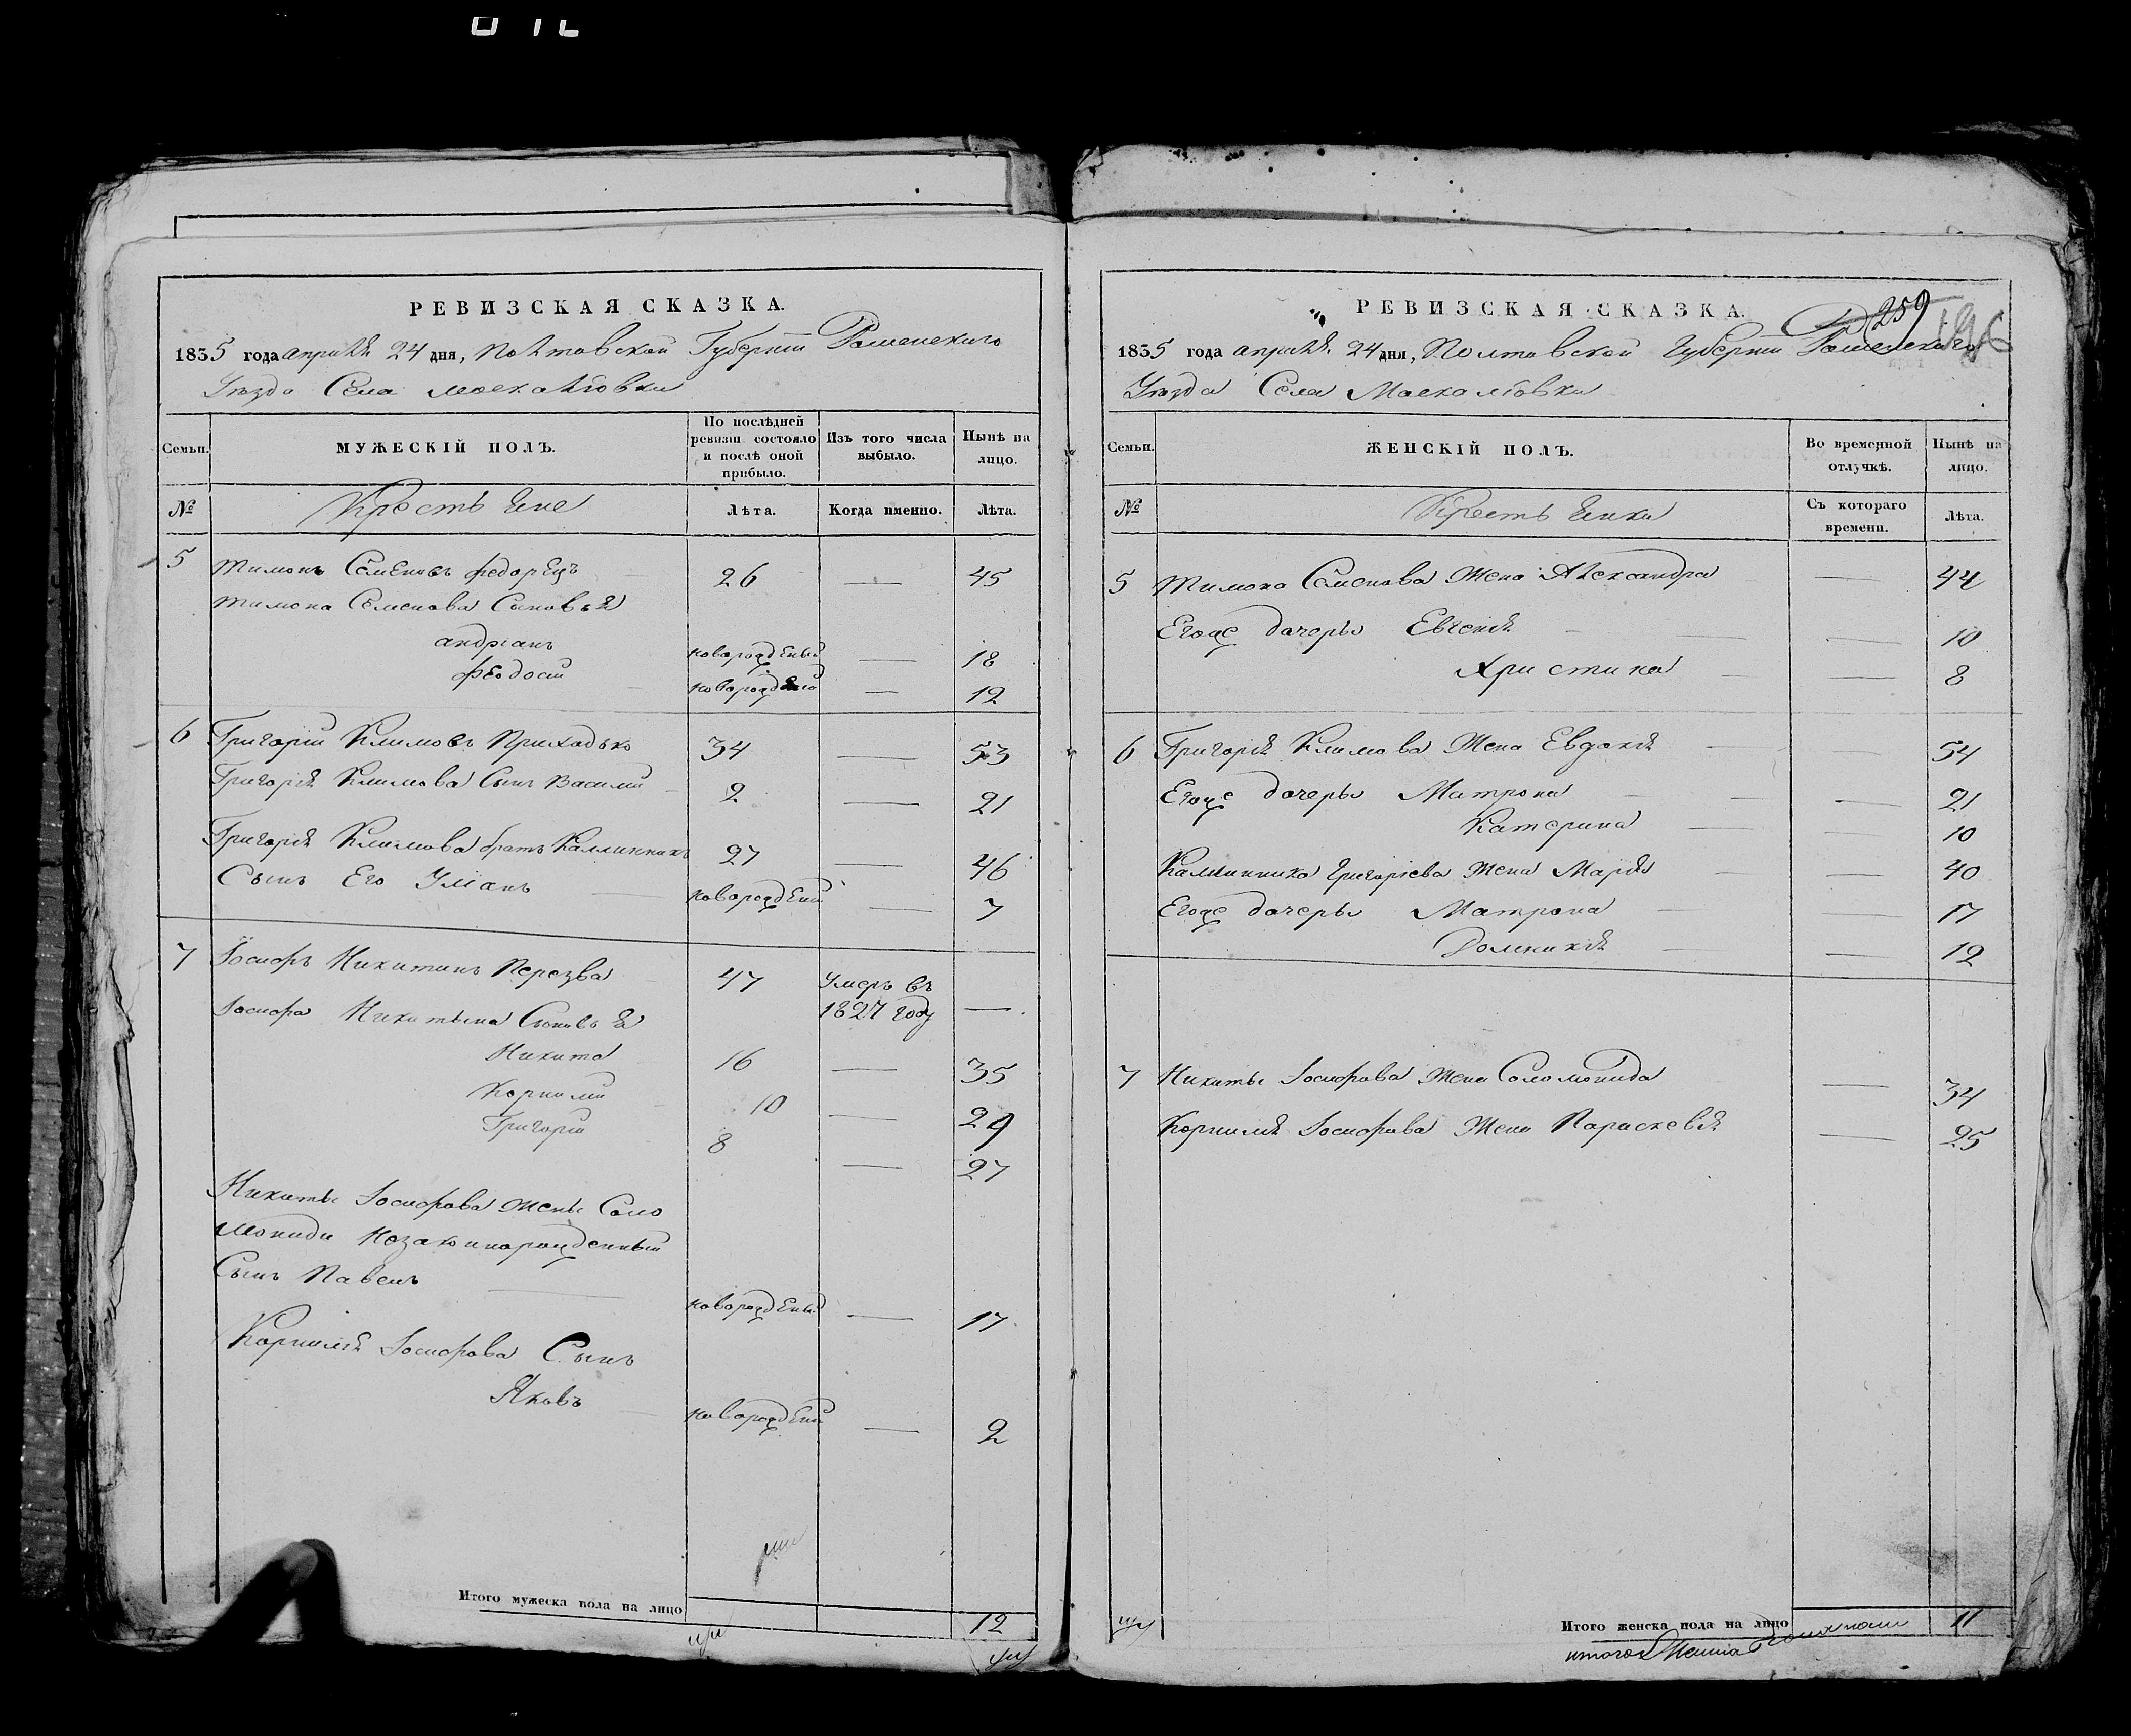 РЕВИЗСКАЯ СКАЗКА.
1835 года апреля 24 дня, Полтавской Губернии Роменского
Уезда Села Москалювки
Семьи.
МУЖЕСКІЙ ПОЛЪ.
По послѣдней ревизіи состояло и послѣ оной прибыло.
Изъ того числа выбыло.
Нынѣ на лицо.
№
Крестьяне
Лѣта.
Когда именно.
Лѣта.
5 Тимонъ Семеновъ Федорецъ 26 — 45
Тимона Семенова Сыновья
андріанъ новорожденый — 18
Феодосій новорожденый — 12
6 Григорій Климовъ Приходько 34 — 53
Григорія Климова Сынъ Василий 2 — 21
Григорія Климова братъ Каллиникъ 27 — 46
Сынъ Его Уліанъ новорожденый — 7
7 Іосифъ Никитинъ Перезва 47 Умеръ въ 1827 году —
Іосифа Никитина Сыновья
Никита 16 — 35
Корнилій 10 — 29
Григорій 8 — 27
Никиты Іосифова жены Соло
мониды Незаконнорожденный
Сынъ Павелъ новорожденый — 17
Корнилія Іосифова Сынъ
Яковъ новорожденый — 2
Итого мужеска пола на лицо 12
РЕВИЗСКАЯ СКАЗКА.
259
196
1835 года апреля 24 дня, Полтавской Губернии Роменского
Уезда Села Москалювки
Семьи.
ЖЕНСКІЙ ПОЛЪ.
Во временной отлучкѣ.
Нынѣ на лицо.
№
Крестьянки
Съ котораго времени.
Лѣта.
5 Тимона Семенова Жена Александра — 44
Егоже дочеры Евгенія — 10
Христина — 8
6 Григорія Климова Жена Евдокія — 54
Егоже дочеры Матрона — 21
Катерина — 10
Каллиника Григоріева Жена Марія — 40
Егоже дочеры Матрона — 17
Домникія — 12
7 Никиты Іосифова Жена Соломонида — 34
Корнилія Іосифова Жена Параскевія — 25
Итого женска пола на лицо 11